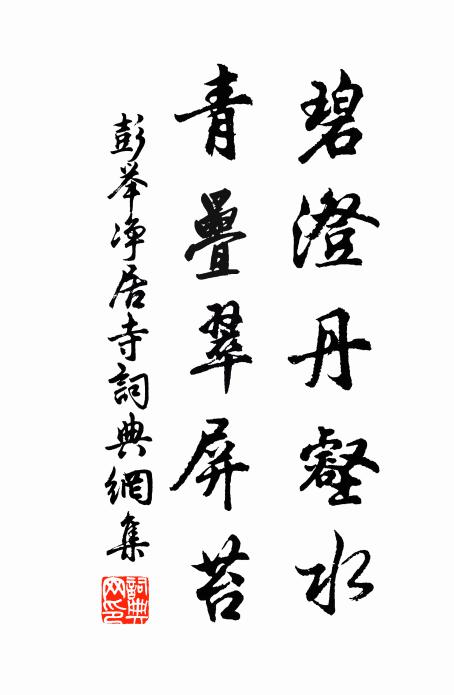 碧澄丹壑水
青疊翠屏苔
彭举净居寺詞典網集
詞典網印